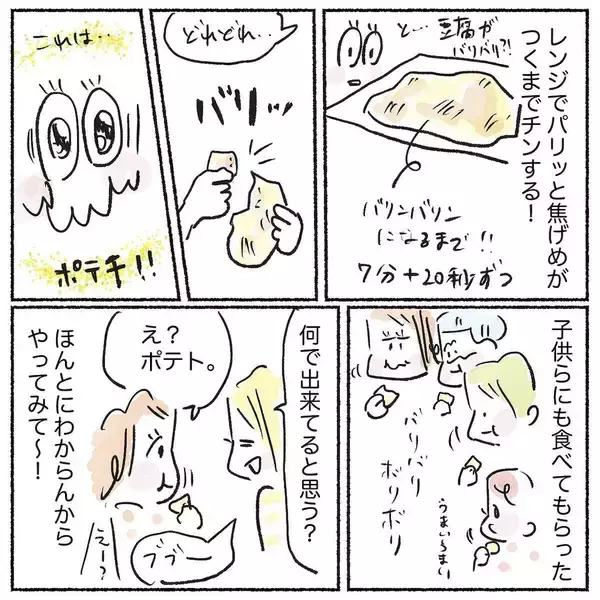 レンジでパリッと焦げめが
つくまでチンする！
と…豆腐が
バリバリ?!
バリンバリン
になるまで!!
7分+20秒ずつ
どれどれ..
バリッ
これは..
ポテチ!!
子供らにも食べてもらった
バリバリ
ボリボリ
うまいうまい
何で出来てると思う？
え？
ポテト。
ブブー
えー？
ほんとにわからんから
やってみて〜！